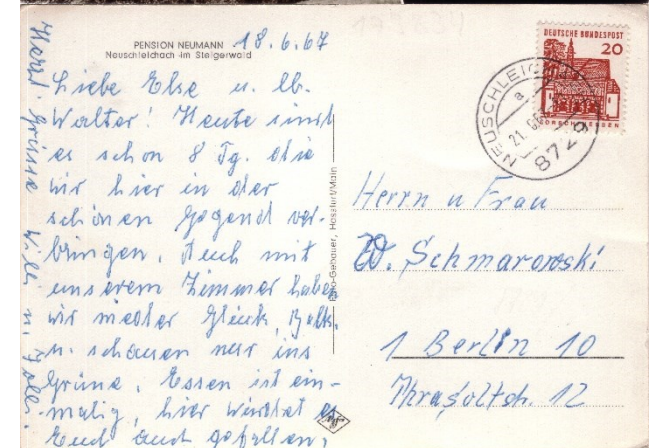 PENSION NEUMANN
Neuschleichach im Steigerwald
18.6.67
Liebe Else u. lb.
Walter! Heute sind
es schon 8 Tg. die
wir hier in der
schönen Gegend ver-
bringen. Auch mit
unserem Zimmer haben
wir wieder Glück, Balk.
u. schauen nur ins
Grüne. Essen ist ein-
malig, hier würdet es
Euch auch gefallen,
Herzl. Grüsse Willi u.
Foto-Gebauer, Hassfurt/Main
DEUTSCHE BUNDESPOST
20
LORSCH HESSEN
NEUSCHLEICH
a
21.
8729
Herrn u Frau
W. Schmarowski
1 Berlin 10
12